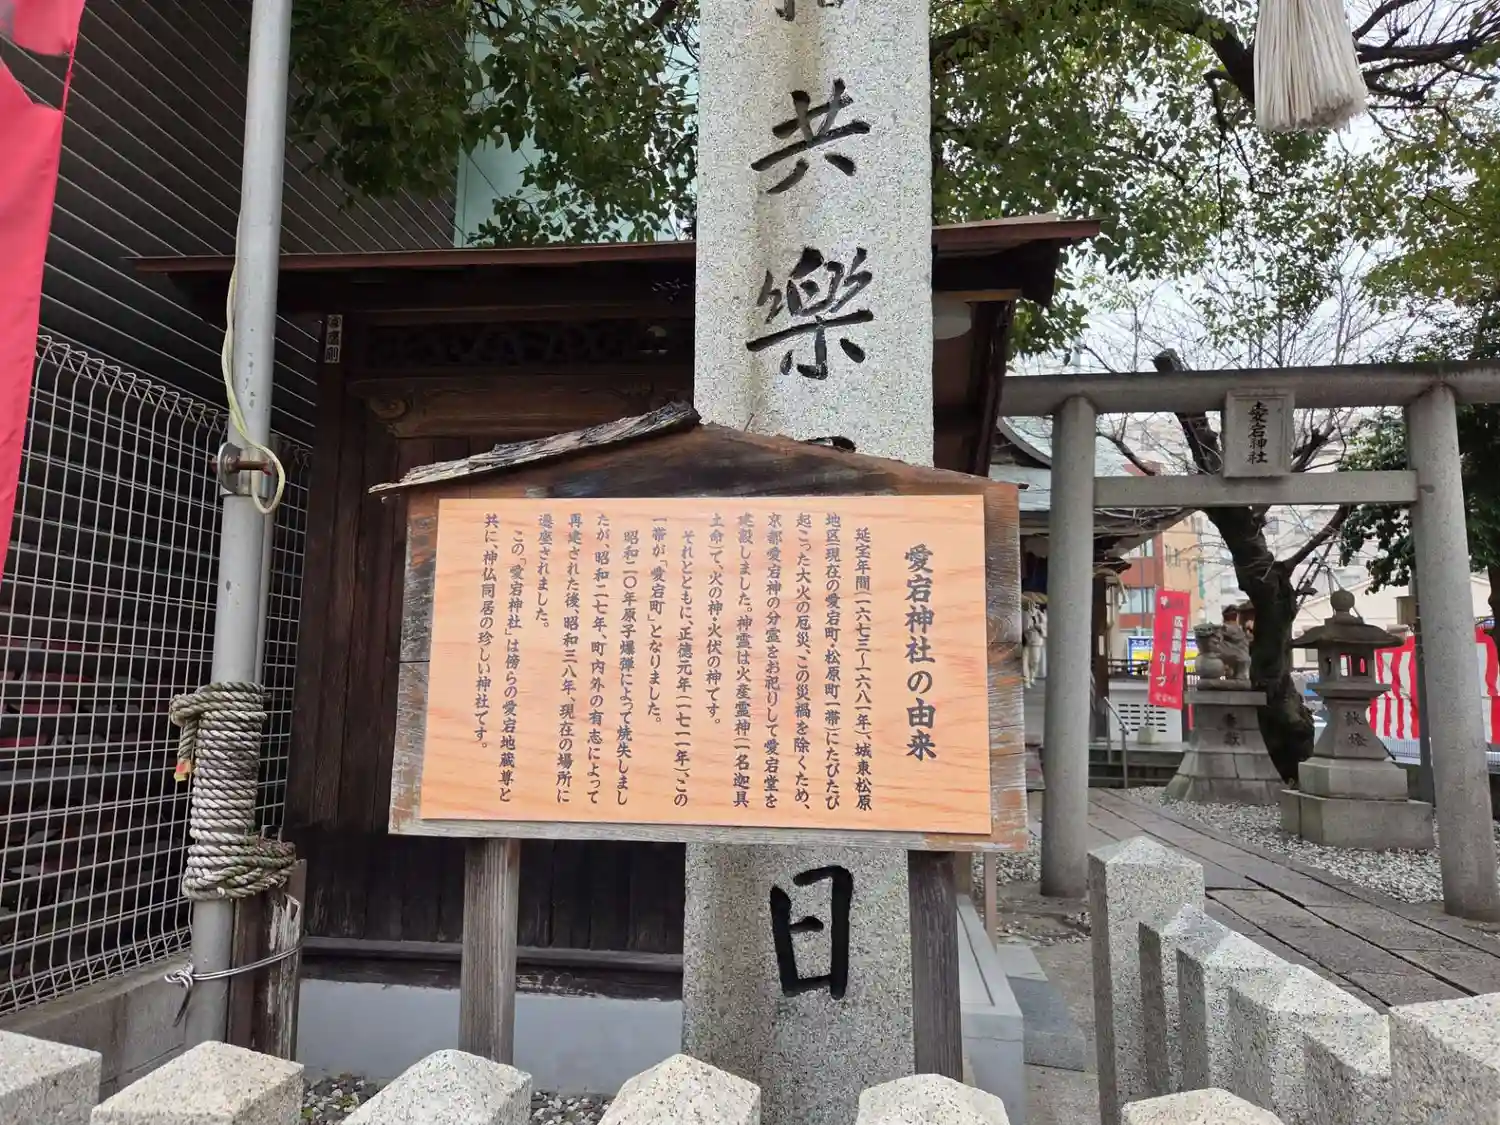 共樂
日
愛宕神社の由来
延宝年間(一六七三〜一六八一年)、城東松原
地区(現在の愛宕町・松原町一帯)にたびたび
起こった大火の厄災、この災禍を除くため、
京都愛宕神の分霊をお祀りして愛宕堂を
建設しました。神霊は火産霊神(一名迦具
土命)で、火の神・火伏の神です。
それとともに、正徳元年(一七一一年)、この
一帯が「愛宕町」となりました。
昭和二〇年原子爆弾によって焼失しまし
たが、昭和二七年、町内外の有志によって
再建された後、昭和三八年、現在の場所に
遷座されました。
この「愛宕神社」は傍らの愛宕地蔵尊と
共に、神仏同居の珍しい神社です。
愛宕神社
広島東洋カープ
献燈